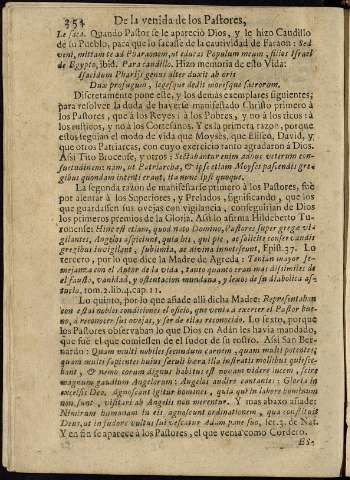 354 De la venida de los Pastores,
le saca. Quando Pastor se le apareciò Dios, y le hizo Caudillo
de su Pueblo, para que lo sacasse de la cautividad de Faraon: Sed
veni, mittam te ad Pharaonem, ut educas Populum meum, filios Israel
de Egypto, ibid. Para caudillo. Hizo memoria de esto Vida:
Isacidum Pharijs genus alter duxit ab oris
Dux profugum, legesque dedit moresque sacrorum.
Discretamente pone este, y los demàs exemplares siguientes;
para resolver la duda de haverse manifestado Christo primero à
los Pastores, que à los Reyes: à los Pobres, y no à los ricos: à
los rusticos, y no à los Cortesanos. Y es la primera razon, porque
estos seguian el modo de vida que Moysès, que Eliseo, David, y
que otros Patriarcas, con cuyo exercicio tanto agradaron à Dios.
Assi Tito Brocense, y otros: Sectabantur enim adhuc veterum con-
suetudinem: nam, ut Patriarchæ, & ipse etiam Moyses pascendis gre-
gibus quondam intenti erant, ita nunc ipsi quoque.
La segunda razon de manifestarse primero à los Pastores, fuè
por alentar à los Superiores, y Prelados, significando, que los
que guardassen sus ovejas con vigilancia, conseguirian de Dios
los primeros premios de la Gloria. Assi lo afirma Hildeberto Tu-
ronense: Hinc est etiam, quod nato Domino, Pastores super grege vi-
gilantes, Angelos aspiciunt, quia hi, qui piè, ac solicitè conservandis
gregibus invigilant, sublimia, ac divina intuentur, Epist. 37. Lo
tercero, por lo que dice la Madre de Agreda: Tenian mayor se-
mejanza con el Autor de la vida, tanto quanto eran mas dissimiles de
el fausto, vanidad, y ostentacion mundana, y lexos de su diabolica as-
tucia, tom. 2. lib. 4. cap. 11.
Lo quinto, por lo que añade alli dicha Madre: Representaban
con estas nobles condiciones el oficio, que venia à exercer el Pastor bue-
no, à reconocer sus ovejas, y ser de ellas reconocido. Lo sexto, porque
los Pastores observaban lo que Dios en Adàn les havia mandado,
que fuè el que comiessen de el sudor de su rostro. Assi San Ber-
nardo: Quam multi nobiles secundum carnem, quam multi potentes,
quam multi sapientes hujus sæculi hora illa in stratis mollibus quiesce-
bant, & nemo eorum dignus habitus est novam videre lucem, scire
magnum gaudium Angelorum: Angelos audire cantantes: Gloria in
excelsis Deo, agnoscant igitur homines, quia qui in labore hominum
non sunt, visitari ab Angelis non merentur. Y mas abaxo añade:
Nimirum humanam tu eis agnoscunt ordinationem, qua constituit
Deus, ut in sudore vultus sui vescatur Adam pane suo, ser. 3. de Nat.
Y en fin se aparece à los Pastores, el que venia como Cordero.
ES-